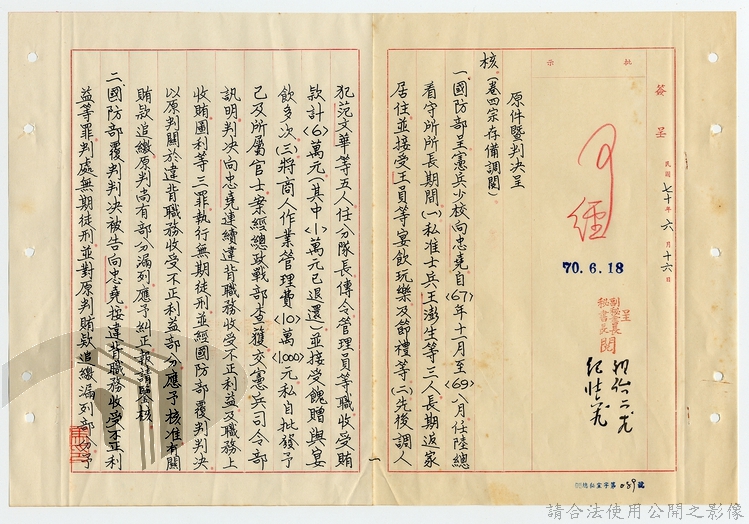 簽呈 民國七十年六月十六日
批示
可
經
70.6.18
呈
副秘書長
秘書長 閱
原件暨判決呈
核(卷四宗存備調閱)
一國防部呈憲兵少校向忠堯自<67>年十一月至<69>八月任陸總
看守所所長期間(一)私准士兵王澎生等三人長期返家
居住並接受王員等宴飲玩樂及節禮等(二)先後調人
犯范文華等五人任分隊長傳令管理員等職收受賄
款計<6>萬元(其中<1>萬元已退還)並接受餽贈與宴
飲多次(三)將商人作業管理費<10>萬<1000>元私自批發予
己及所屬官士案經總政戰部查獲交憲兵司令部
訊明判決向忠堯連續違背職務收受不正利益及職務上
收賄圖利等三罪執行無期徒刑並經國防部覆判判決
以原判關於違背職務收受不正利益部分應予核准有關
賄款追繳原判尚有部分漏列應予糾正報請鑒核
二國防部覆判判決被告向忠堯按違背職務收受不正利
益等罪判處無期徒刑並對原判賄款追繳漏列部分予
字第 089 號
請合法使用公開之影像